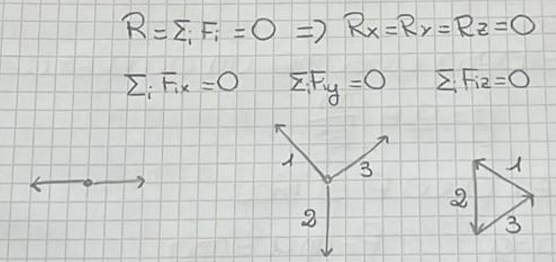 R = Σi Fi = 0 => Rx = Ry = Rz = 0
Σi Fix = 0 Σi Fiy = 0 Σi Fiz = 0
1 3 2
1 2 3